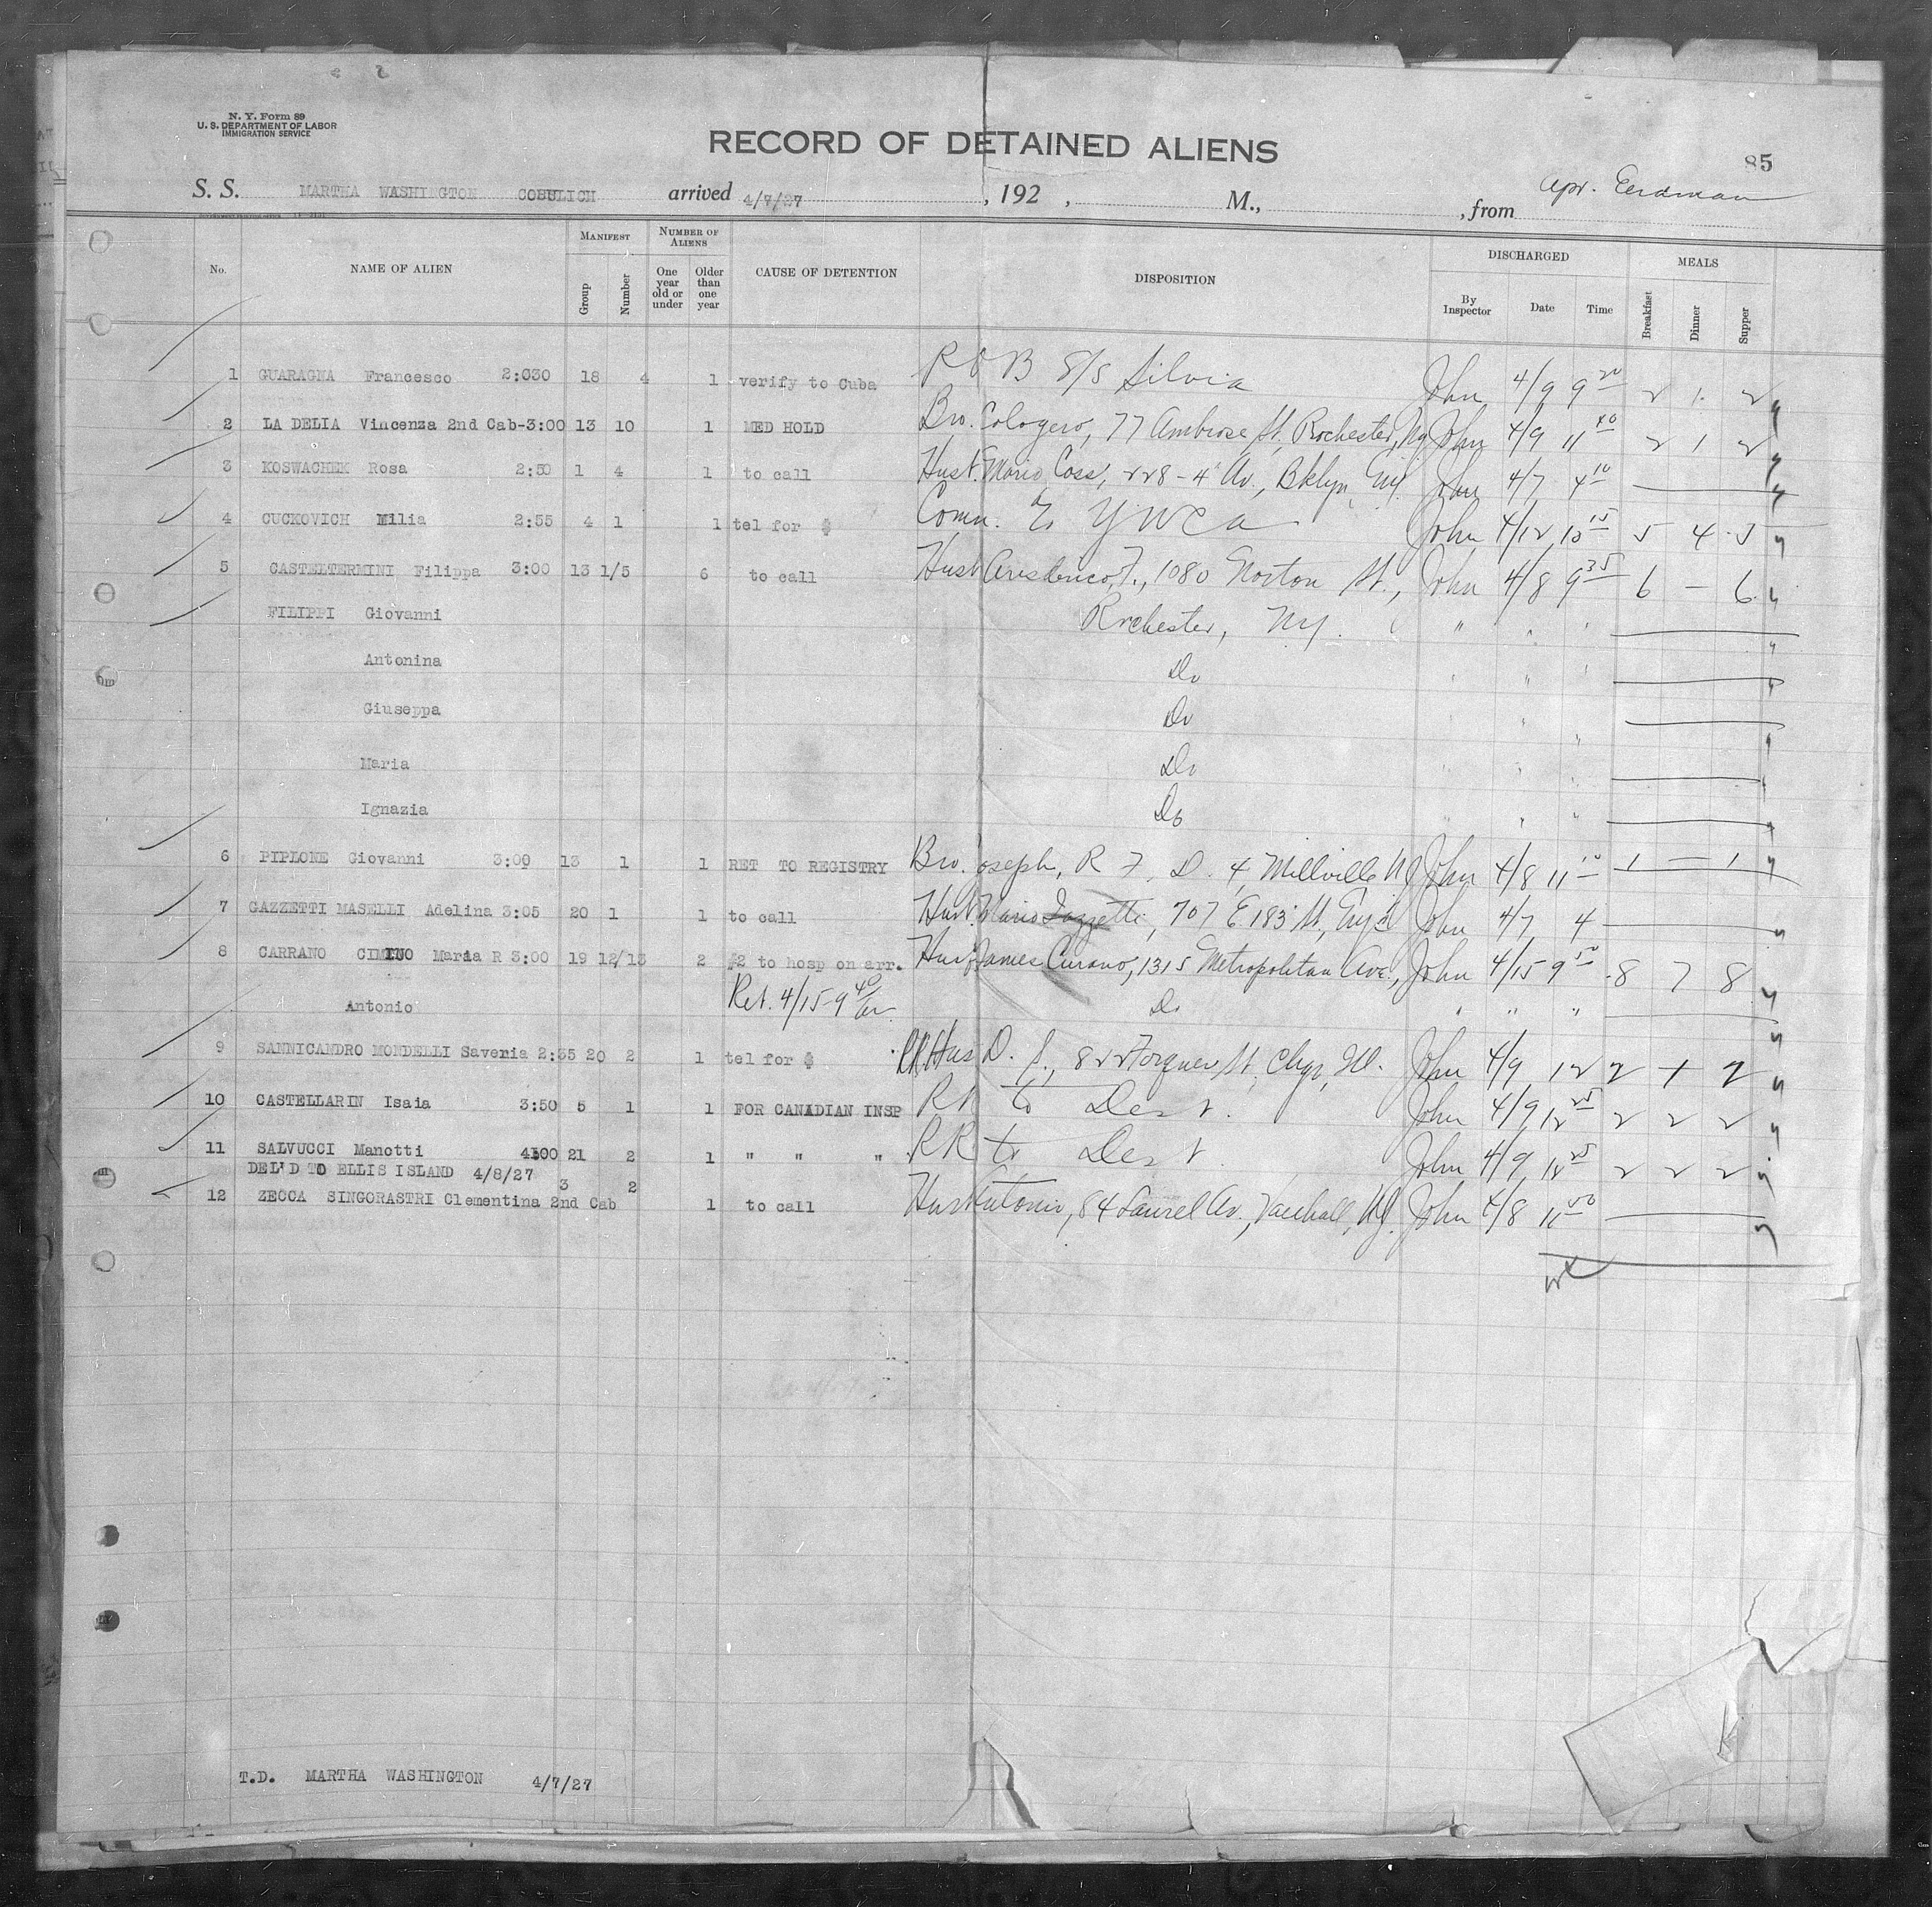 N. Y. Form 89
U. S. DEPARTMENT OF LABOR
IMMIGRATION SERVICE
RECORD OF DETAINED ALIENS
85
S. S. MARTHA WASHINGTON COSULICH arrived 4/7/27, 192 , M., , from
No. NAME OF ALIEN MANIFEST Group Number NUMBER OF ALIENS One year old or under Older than one year CAUSE OF DETENTION DISPOSITION DISCHARGED By Inspector Date Time MEALS Breakfast Dinner Supper
1 GUARAGNA Francesco 2:030 18 4 1 verify to Cuba S/S Silvia John 4/9 9 20 2 1 2
2 LA DELIA Vincenza 2nd Cab-3:00 13 10 1 MED HOLD Bro. Cologero, 77 Ambrose St. Rochester, Ny John 4/9 11 40 2 1 2
3 KOSWACHEK Rosa 2:50 1 4 1 to call Hus. Mario Coss, 228 - 4 Av., Bklyn, Ny. John 4/7 4 10
4 CUCKOVICH Milia 2:55 4 1 1 tel for $ Comn. to YWCA John 4/12 10 15 5 4 5
5 CASTELTERMINI Filippa 3:00 13 1/5 6 to call Hus. 1080 Norton St., John 4/8 9 35 6 — 6
FILIPPI Giovanni Rochester, Ny. " " "
Antonina Do " " "
Giuseppa Do
Maria Do
Ignazia Do
6 PIPLONE Giovanni 3:00 13 1 1 RET TO REGISTRY Bro. Joseph, R F. D. 4, Millville NJ John 4/8 11 10 1 — 1
7 GAZZETTI MASELLI Adelina 3:05 20 1 1 to call Hus. Mario Gazzetti, 707 E 183 St., Ny John 4/7 4
8 CARRANO CIMINO Maria R 3:00 19 12/13 2 #2 to hosp on arr. Hus. James 1315 Metropolitan Ave., John 4/15 9 50 8 7 8
Antonio Ret. 4/15-9 40 Do " " "
9 SANNICANDRO MONDELLI Saveria 2:35 20 2 1 tel for $ RR Hus D. 822 Forquer St, Chgo, Ill. John 4/9 12 2 1 2
10 CASTELLARIN Isaia 3:50 5 1 1 FOR CANADIAN INSP RR to Dest. John 4/9 12 25 2 2 2
11 SALVUCCI Manotti 4:00 21 2 1 " " " RR to Dest John 4/9 12 25 2 2 2
DEL'D TO ELLIS ISLAND 4/8/27
12 ZECCA SINGORASTRI Clementina 2nd Cab 3 2 1 to call Hus Antonio, 84 Laurel Av., Vauxhall, NJ. John 4/8 11 50
T.D. MARTHA WASHINGTON 4/7/27